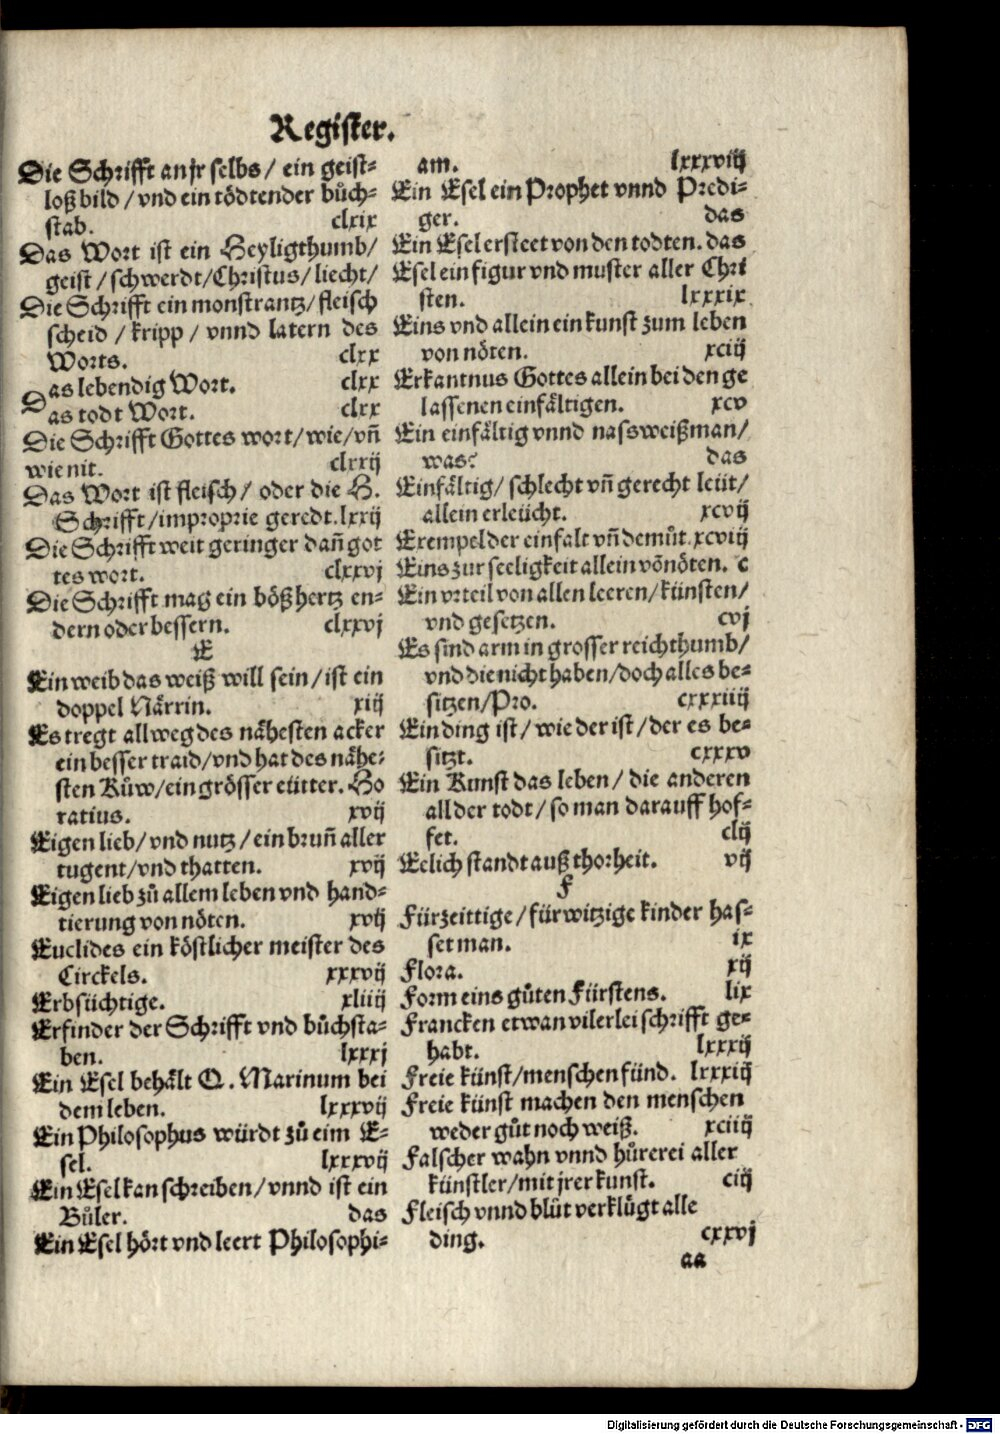 Register.
Die Schrifft an jr selbs / ein geist-
loß bild / vnd ein tödtender bůch-
stab. clxix
Das Wort ist ein Heyligthumb/
geist / schwerdt/Christus / liecht/
Die Schrifft ein monstrantz/ fleisch
scheid / kripp / vnnd latern des
Worts. clxx
Das lebendig Wort. clxx
Das todt Wort. clxx
Die Schrifft Gottes wort/wie/vñ
wie nit. clxxij
Das Wort ist fleisch/ oder die H.
Schrifft/improprie geredt.lxxij
Die Schrifft weit geringer dañ got
tes wort. clxxvj
Die Schrifft mag ein bößhertz en-
dern oder bessern. clxxvj
E
Ein weib das weiß will sein/ist ein
doppel Närrin. xij
Es tregt allweg des nähesten acker
ein besser traid/vnd hat des nähe-
sten Kůw/ein grösser eütter. Ho
ratius. xvij
Eigen lieb/vnd nutz / ein bruñ aller
tugent/vnd thatten. xvij
Eigen lieb zů allem leben vnd hand-
tierung von nöten. xvij
Euclides ein köstlicher meister des
Circkels. xxxvij
Erbsüchtige. xliiij
Erfinder der Schrifft vnd bůchsta-
ben. lxxxj
Ein Esel behält Q. Marinum bei
dem leben. lxxxvij
Ein Philosophus würdt zů eim E-
sel. lxxxvij
Ein Esel kan schreiben/vnnd ist ein
Bůler. das
Ein Esel hört vnd leert Philosophi-
am. lxxxviij
Ein Esel ein Prophet vnnd Predi-
ger. das
Ein Esel ersteet von den todten. das
Esel ein figur vnd muster aller Chri
sten. lxxxix
Eins vnd allein ein kunst zum leben
von nöten. xciij
Erkantnus Gottes allein bei den ge
lassenen einfältigen. xcv
Ein einfältig vnnd nassweiß man/
was? das
Einfältig/ schlecht vñ gerecht leüt/
allein erleücht. xcvij
Exempel der einfalt vñ demůt. xcviij
Eins zur seeligkeit allein võ nöten. c
Ein vrteil von allen leeren/künsten/
vnd gesetzen. cvj
Es sind arm in grosser reichthumb/
vnd die nicht haben/doch alles be-
sitzen/Pro. cxxxiiij
Ein ding ist / wie der ist /der es be-
sitzt. cxxxv
Ein Kunst das leben / die anderen
all der todt / so man darauff hof-
fet. clij
Eelich standt auß thorheit. vij
F
Fürzeittige /fürwitzige kinder has-
set man. ix
Flora. xij
Form eins gůten Fürstens. lix
Francken etwan vilerlei schrifft ge-
habt. lxxxij
Freie künst/menschen fünd. lxxxiij
Freie künst machen den menschen
weder gůt noch weiß. xciiij
Falscher wahn vnnd hůrerei aller
künstler/mit jrer kunst. ciij
Fleisch vnnd blůt verklůgt alle
ding. cxxvj
aa
Digitalisierung gefördert durch die Deutsche Forschungsgemeinschaft - DFG